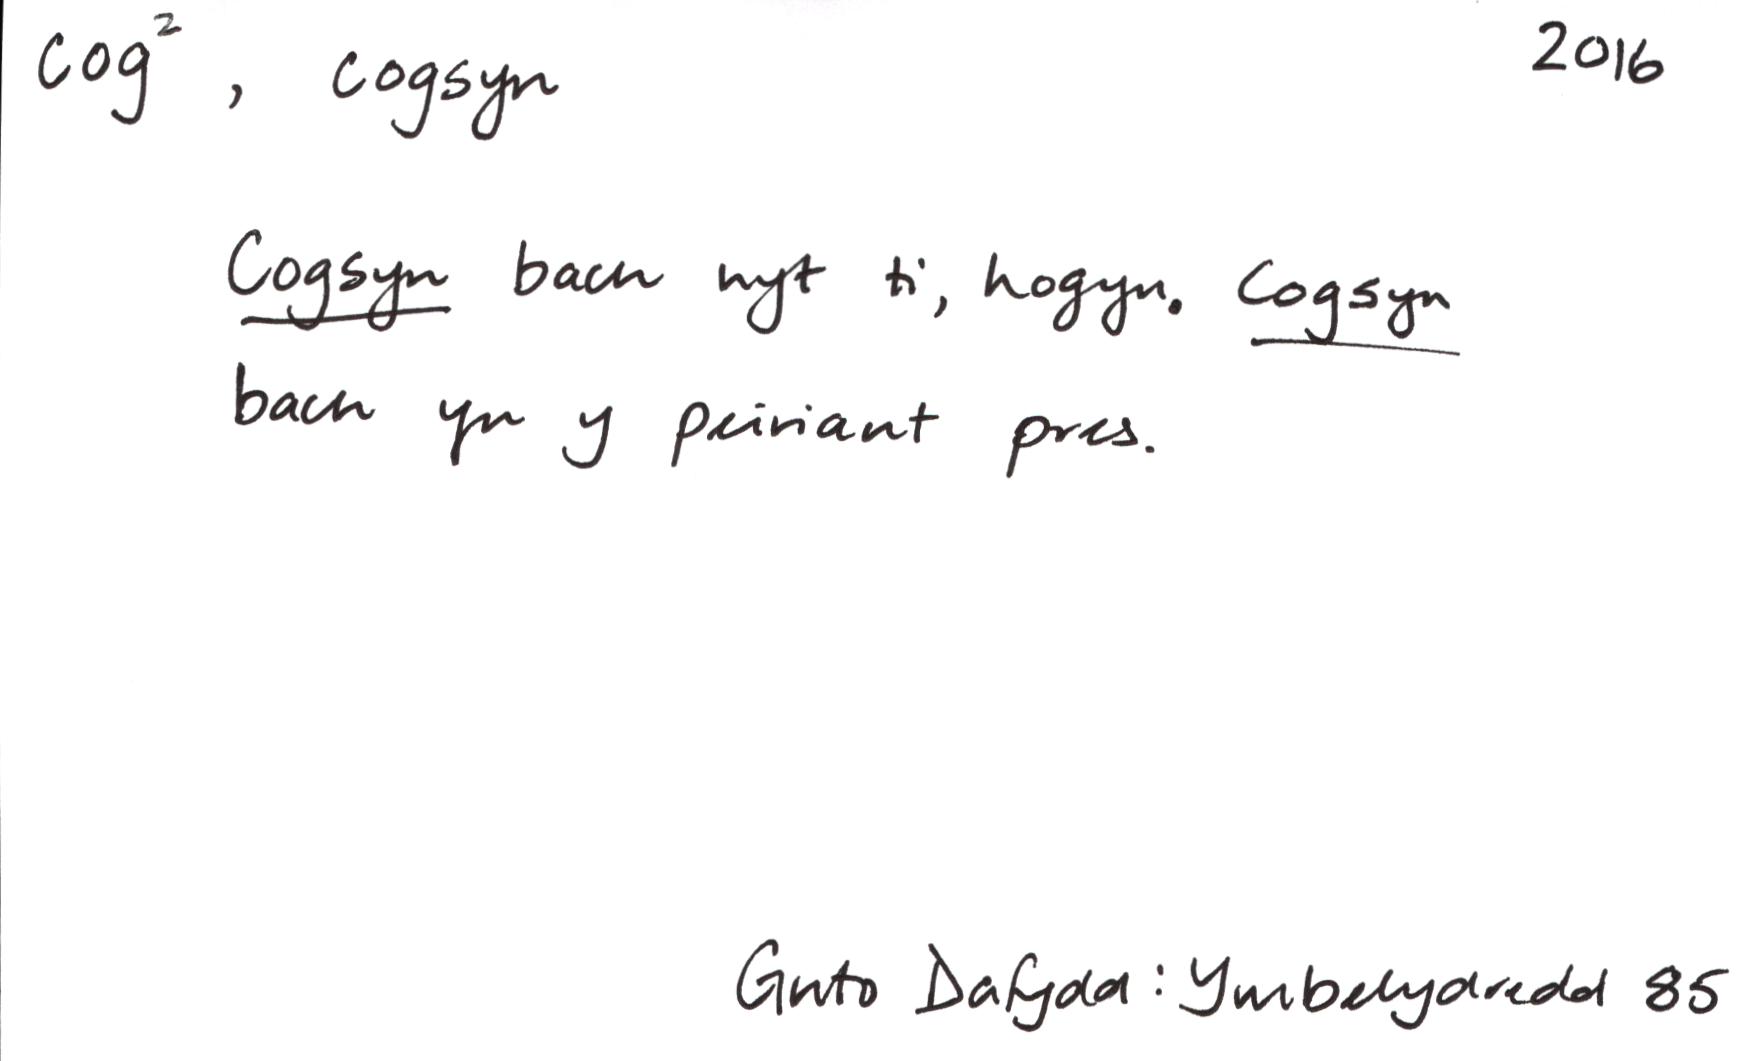 cog², cogsyn 2016
Cogsyn bach nyt ti, hogyn. Cogsyn
bach yn y peiriant pres.
Guto Dafydd: Ymbelydredd 85